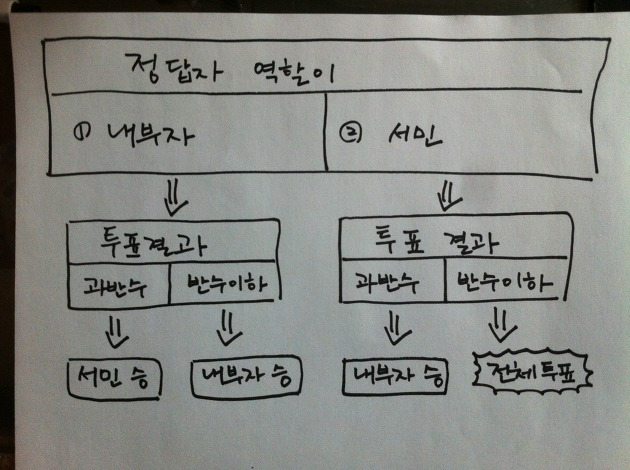 정답자 역할이
① 내부자 ② 서민
투표결과 투표 결과
과반수 반수이하 과반수 반수이하
서민 승 내부자 승 내부자 승 전체투표